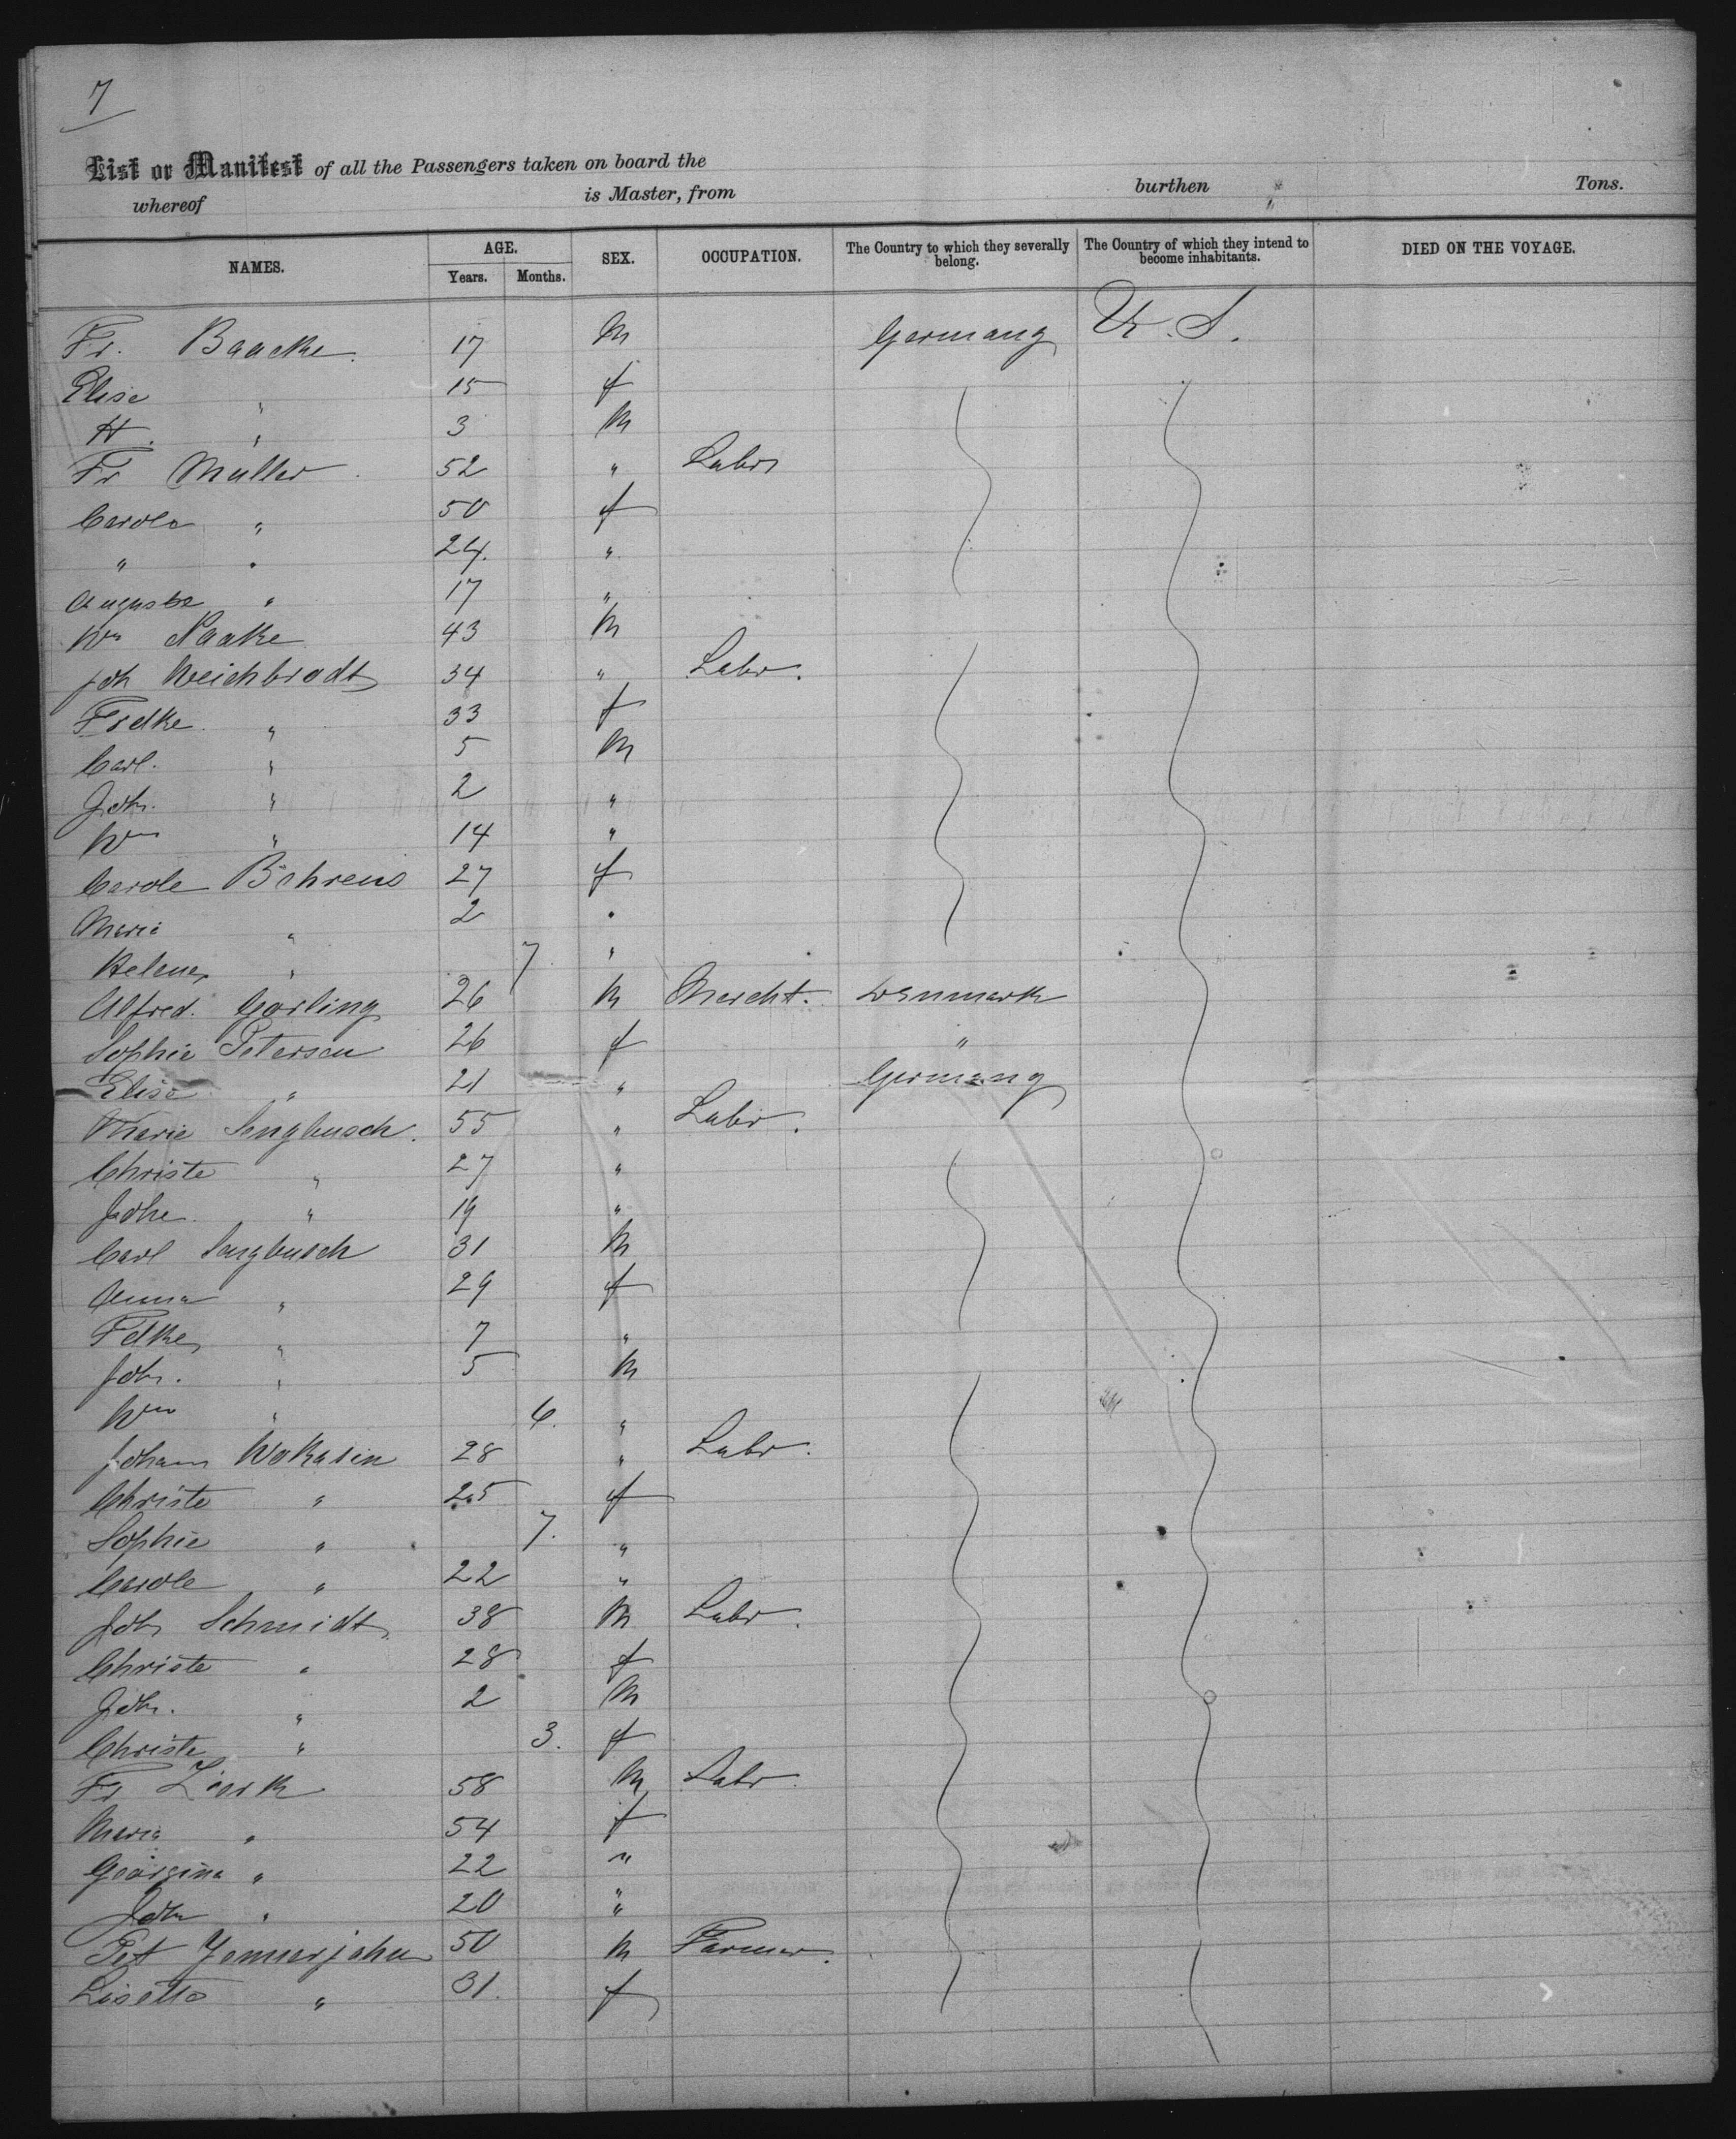 7
List or Manifest of all the Passengers taken on board the
whereof is Master, from burthen " Tons.
NAMES. AGE. SEX. OCCUPATION. The Country to which they severally belong. The Country of which they intend to become inhabitants. DIED ON THE VOYAGE.
Years. Months.
Fr. Baacke. 17 M Germany U. S.
Elise " 15 f
H. " 3 M
Fr Muller 52 " Labr
Carole " 50 f
" " 24. "
Auguste " 17 "
Wm Naake 43 M
Joh Weichbrodt 34 " Labr.
Fredke " 33 f
Carl. " 5 M
Joh. " 2 "
Wm " 14 "
Carole Behrens 27 f
Marie " 2 "
Helene " 7 "
Alfred. Garling 26 M Mercht. Denmark
Sophie Petersen 26 f "
Elise " 21 " Germany
Marie Sengbusch. 55 " Labr.
Christe " 27 "
Johe " 19 "
Carl Sengbusch 31 M
Anna " 29 f
Fdke " 7 "
Joh. " 5 M
Wm " 6. "
Johann Wokasin 28 " Labr.
Christe " 25 f
Sophie " 7. "
Carole " 22 "
Joh Schmidt 38 M Labr.
Christe " 28 f
Joh. " 2 M
Christe " 3. f
Fr Zierk 58 M Labr.
Maria " 54 f
Georgina " 22 "
Joh " 20 "
Pet Jennerjahn 50 M Farmer.
Lisette " 31. f